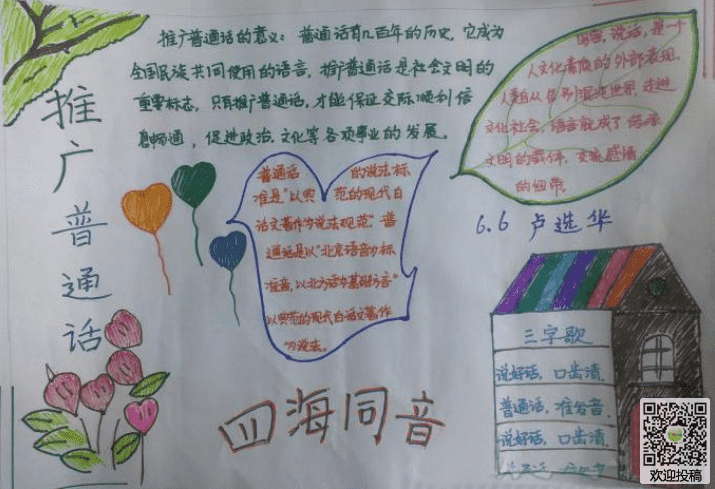 推广普通话
推广普通话的意义：普通话有几百年的历史，它成为
全国民族共同使用的语音，推广普通话是社会文明的
重要标志，只有推广普通话，才能保证交际顺利信
息畅通，促进政治、文化等各项事业的发展。
说话，是一个
人文化素质的外部表现，
人类自从告别混沌世界，走进
文化社会，语言就成了传承
文明的载体，交流感情
的纽带。
6.6 卢选华
普通话的说法标
准是“以典范的现代白
话文著作为说法规范”普
通话是以“北京语音为标
准音，以北方话为基础方言”
以典范的现代白话文著作
为说法。
四海同音
三字歌
说好话，口齿清，
普通话，准发音，
说好话，口齿清，
欢迎投稿